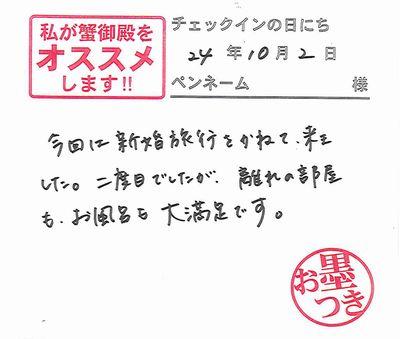 私が蟹御殿を
オススメ
します!!
チェックインの日にち
24年10月2日
ペンネーム 様
今回は新婚旅行をかねて、来ま
した。二度目でしたが、離れの部屋
も、お風呂も大満足です。
お墨つき